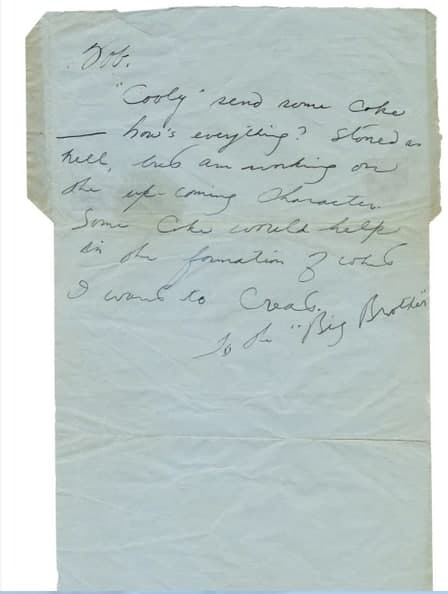 Bob.
"Cooly" send some coke
— how's everything? Stoned as
hell, but am working on
the up-coming character.
Some Coke would help
in the formation of what
I want to Create.
to the "Big Brother"